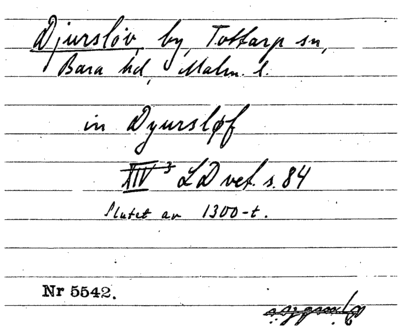 Djursløv, by, Tottarp sn,
Bara hd, Malm. l.
in Dyursløf
XIV 3 LD vet. s. 84
Slutet av 1300-t.
Nr 5542.